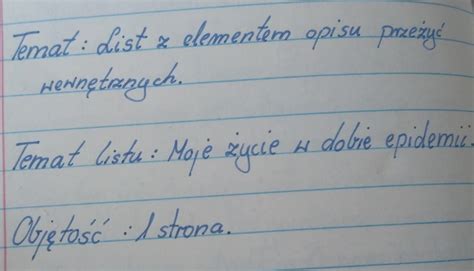 Temat: List z elementem opisu przeżyć
wewnętrznych.
Temat listu: Moje życie w dobie epidemii.
Objętość: 1 strona.